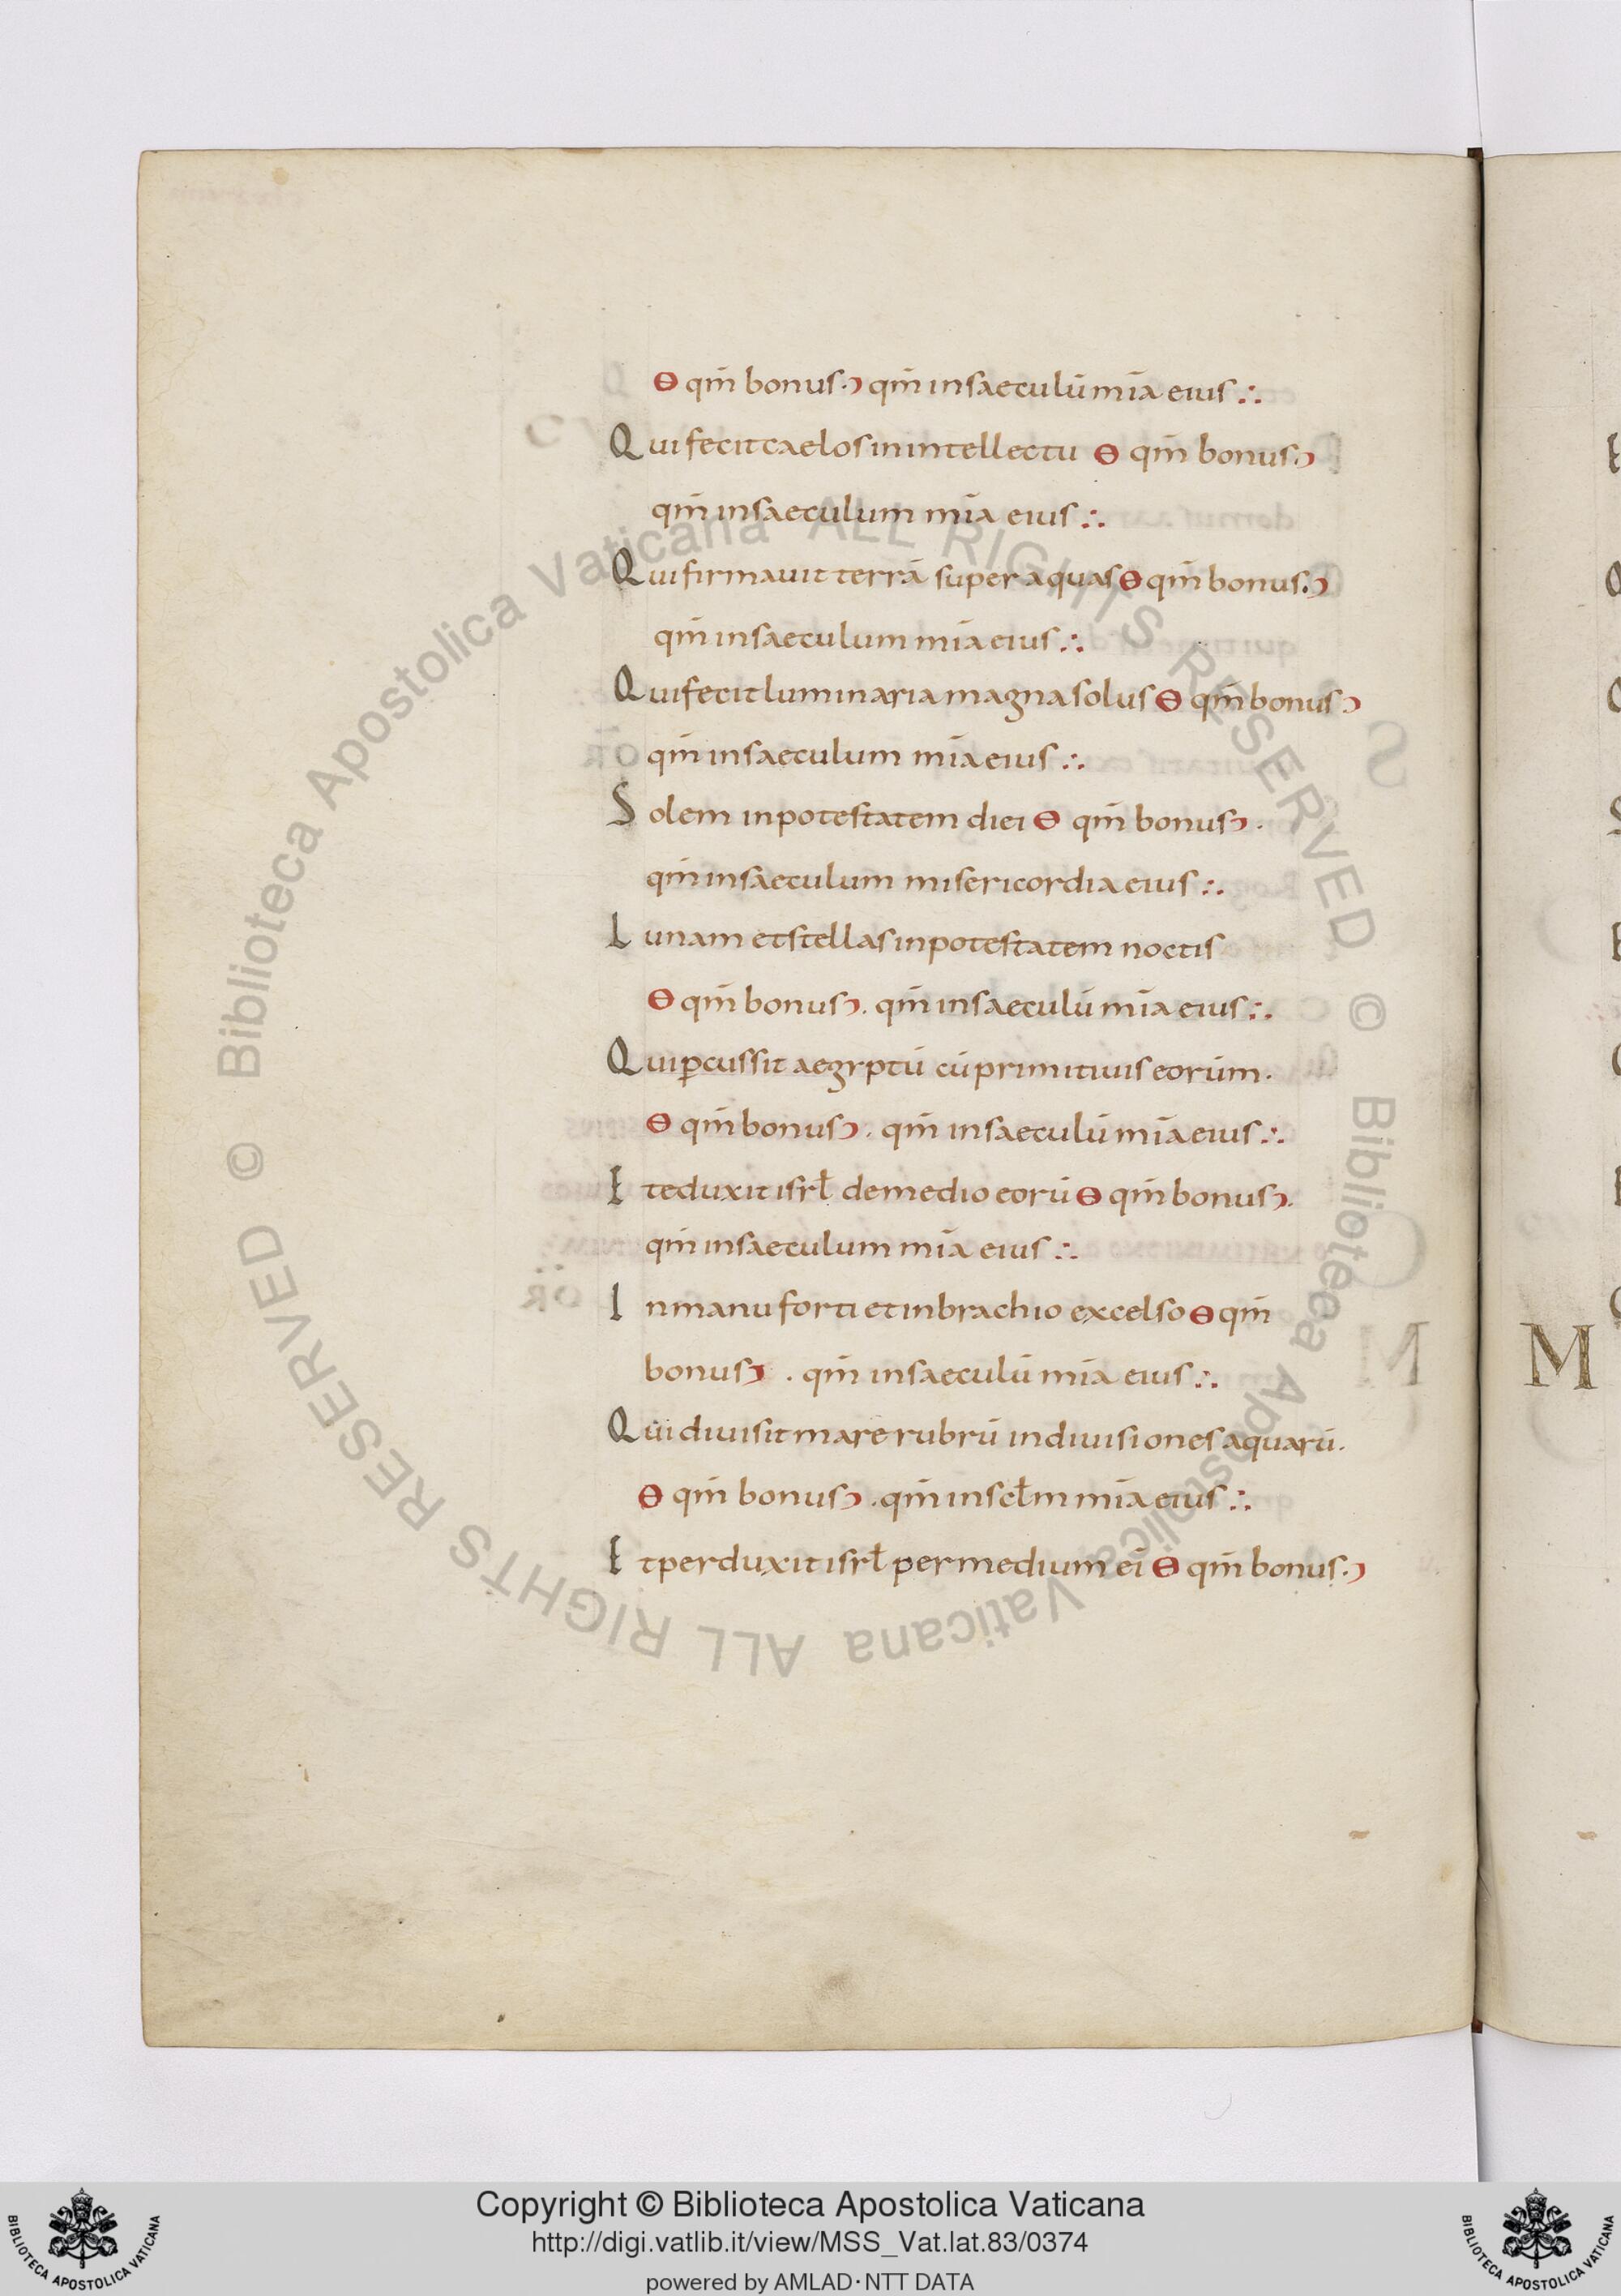 Θ qm̄ bonus·Ɔ qm̄ insaeculū mīa eius ∴
Qui fecit caelos in intellectu Θ qm̄ bonus·Ɔ
qm̄ insaeculum mīa eius ∴
Qui firmauit terrā super aquas Θ qm̄ bonus·Ɔ
qm̄ insaeculum mīa eius ∴
Qui fecit luminaria magna solus Θ qm̄ bonus Ɔ
qm̄ insaeculum mīa eius ∴
Solem inpotestatem diei Θ qm̄ bonus Ɔ.
qm̄ insaeculum misericordia eius ∴
Lunam et stellas inpotestatem noctis
Θ qm̄ bonus Ɔ. qm̄ insaeculū mīa eius ∴
Qui ꝑcussit aegyptū cū primitiuis eorum.
Θ qm̄ bonus Ɔ. qm̄ insaeculū mīa eius ∴
Et eduxit isrł de medio eorū Θ qm̄ bonus Ɔ.
qm̄ insaeculum mīa eius ∴
In manu forti et in brachio excelso Θ qm̄
bonus Ɔ . qm̄ insaeculū mīa eius ∴
Qui diuisit mare rubrū in diuisiones aquarū.
Θ qm̄ bonus Ɔ . qm̄ inscłm mīa eius ∴
Et perduxit isrł per medium eī Θ qm̄ bonus·Ɔ
M
© Biblioteca Apostolica Vaticana ALL RIGHTS RESERVED © Biblioteca Apostolica Vaticana ALL RIGHTS RESERVED
Copyright © Biblioteca Apostolica Vaticana
http://digi.vatlib.it/view/MSS_Vat.lat.83/0374
powered by AMLAD·NTT DATA
BIBLIOTECA APOSTOLICA VATICANA
BIBLIOTECA APOSTOLICA VATICANA